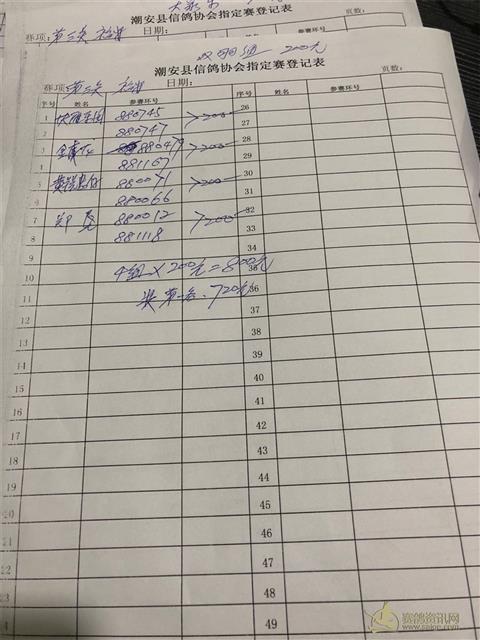 潮安县信鸽协会指定赛登记表
赛项:第三关 日期: 页数:
双明通 200元
潮安县信鸽协会指定赛登记表
赛项:第三关 日期: 页数:
序号 姓名 参赛环号 序号 姓名 参赛环号
1 880745 >200 26
2 880747 27
3 880479 >200 28
4 881167 29
5 880071 >200 30
6 880066 31
7 880012 >200 32
8 881118 33
9 34
10 4组×200元=800元 35
11 奖第一名.720元 36
12 37
13 38
14 39
15 40
16 41
17 42
18 43
19 44
20 45
21 46
22 47
23 48
49
赛鸽资讯网
www.saige.com